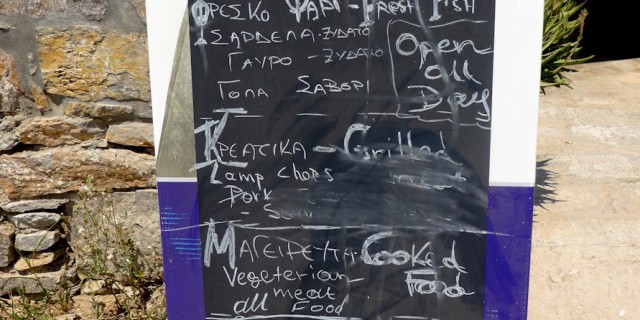 Φρεσκο Ψαρι - Fresh Fish
Σαρδελα - Ξυδατο
Γαυρο - Ξυδατο
Γοπα Σαβορι
Open
all
Day
Κρεατικα - Grilled
Lamp chops
Pork
Μαγειρευτα Cooked
Food
Vegeterian
all meat
Food